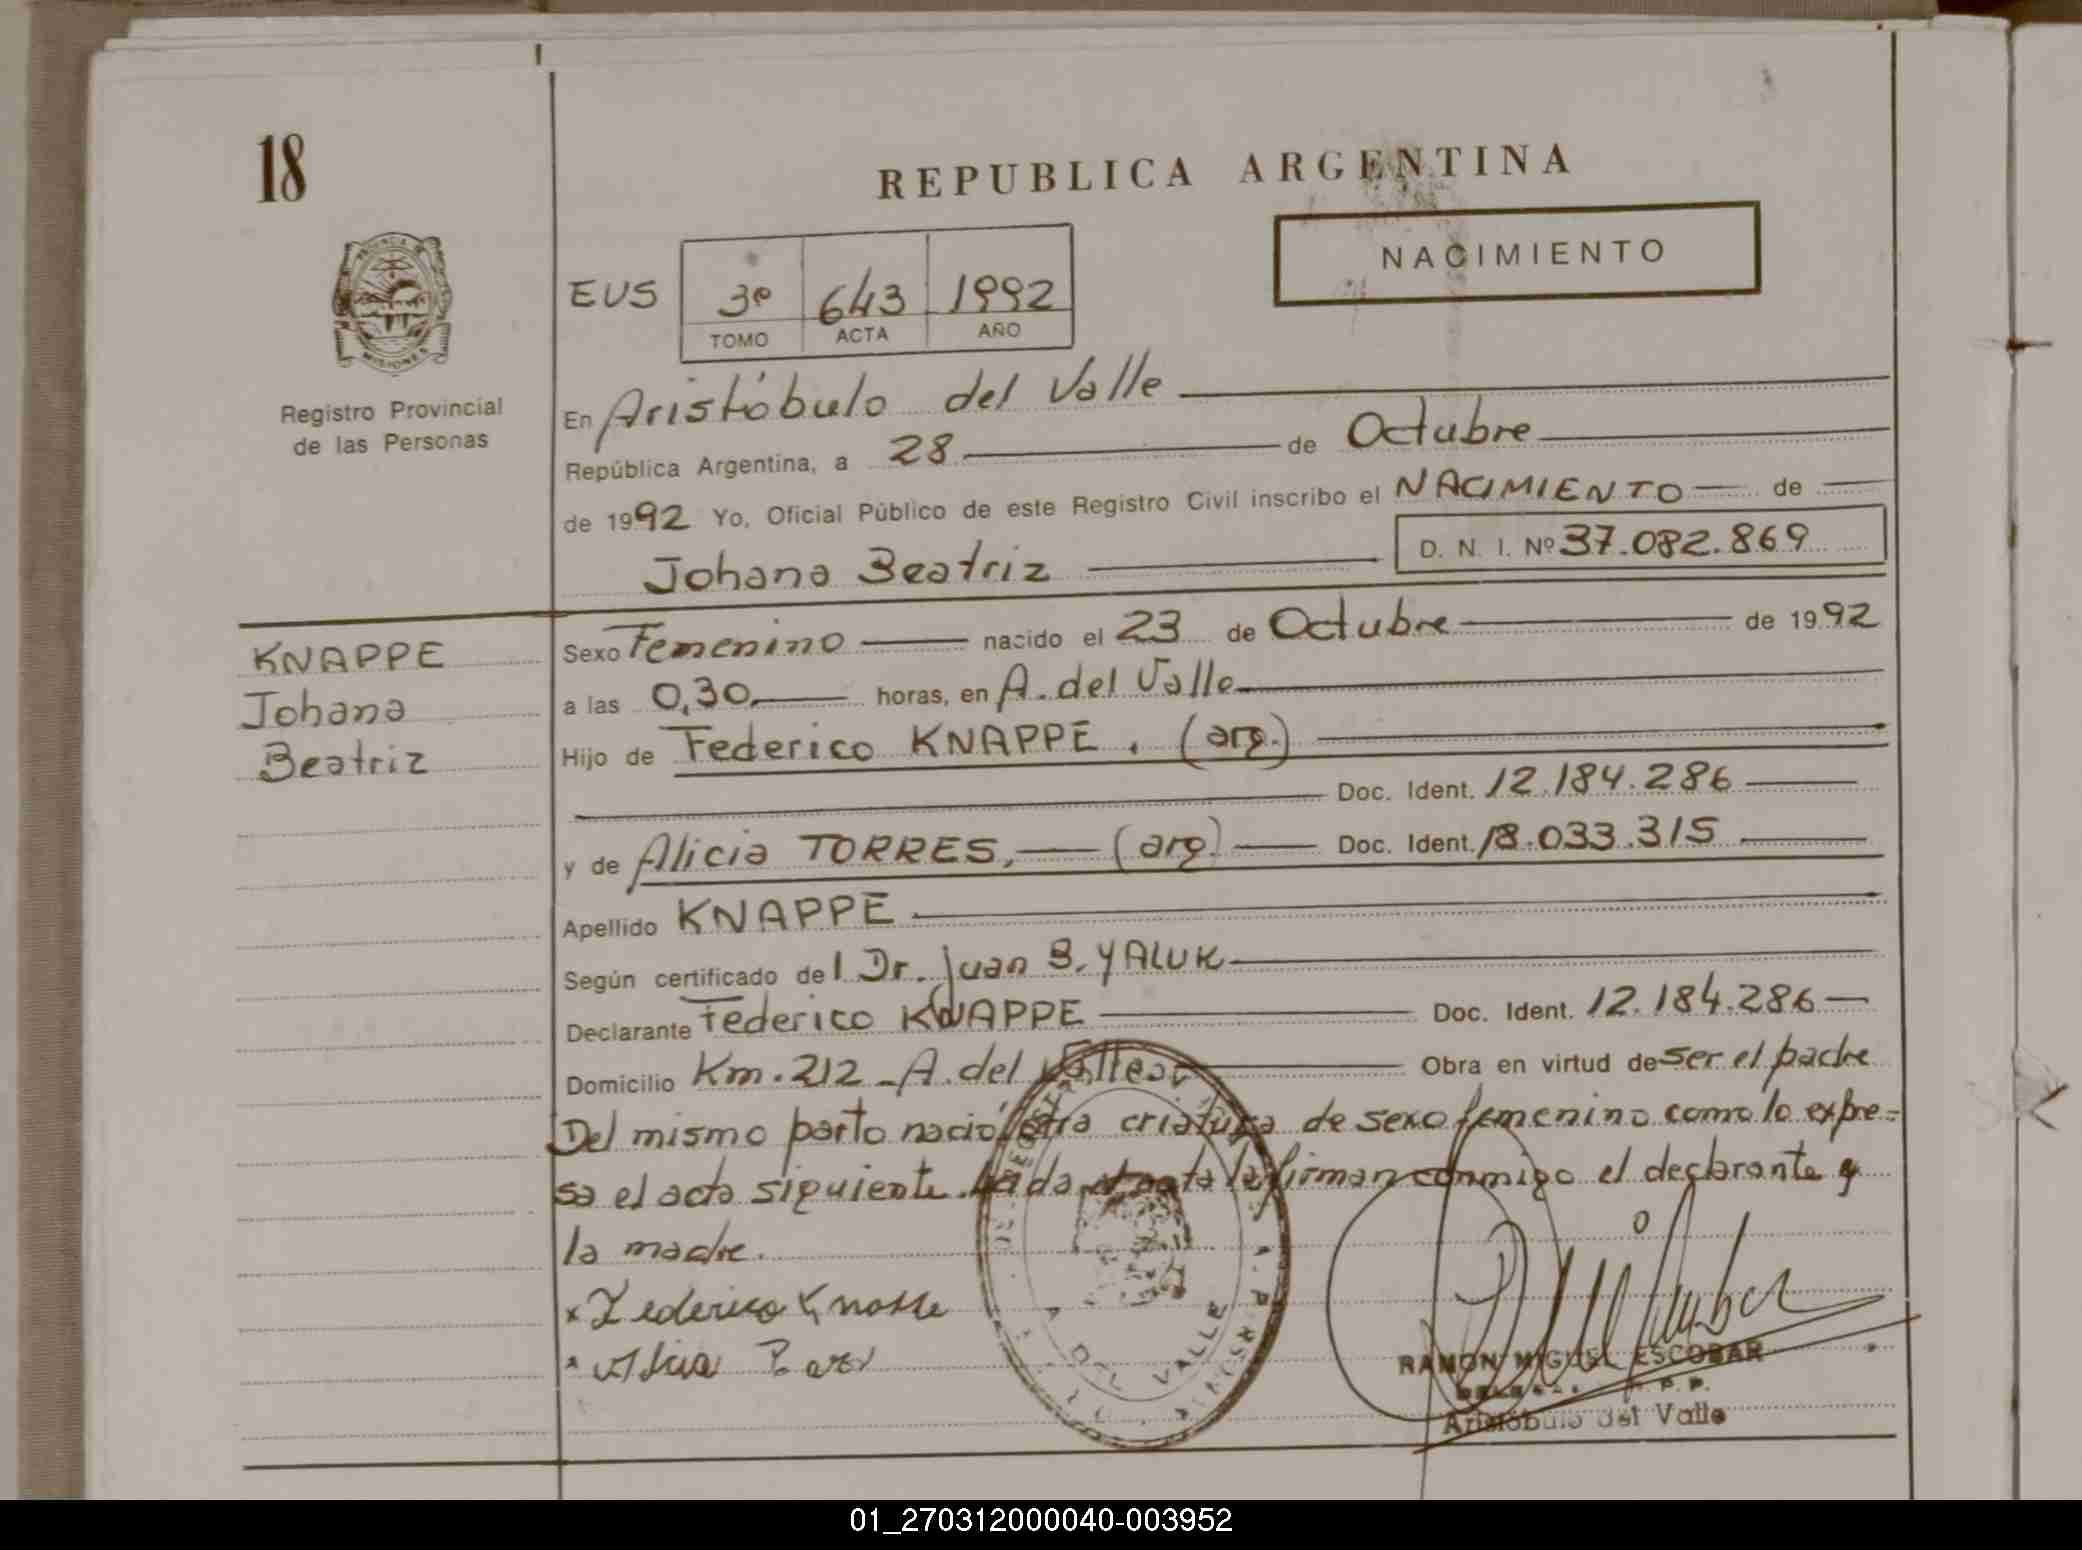 18
REPUBLICA ARGENTINA
NACIMIENTO
EUS 3º 643 1992
TOMO ACTA AÑO
PROVINCIA DE MISIONES
Registro Provincial
de las Personas
En Aristóbulo del Valle
República Argentina, a 28 de Octubre
de 1992 Yo, Oficial Público de este Registro Civil inscribo el NACIMIENTO de
Johana Beatriz D. N. I. Nº 37.082.869
KNAPPE
Johana
Beatriz
Sexo Femenino nacido el 23 de Octubre de 1992
a las 0,30 horas, en A. del Valle
Hijo de Federico KNAPPE. (arg.)
Doc. Ident. 12.184.286
y de Alicia TORRES, (arg.) Doc. Ident. 18.033.315
Apellido KNAPPE
Según certificado del Dr. Juan B. YALUK
Declarante Federico KNAPPE Doc. Ident. 12.184.286
Domicilio Km. 212 - A. del Valle Obra en virtud de ser el padre
Del mismo parto nació otra criatura de sexo femenino como lo expre=
sa el acta siguiente. Leida el acta la firman conmigo el declarante y
la madre.
x Federico Knappe
x Alicia
A. DEL VALLE
RAMON MIGUEL ESCOBAR
Aristóbulo del Valle
01_270312000040-003952